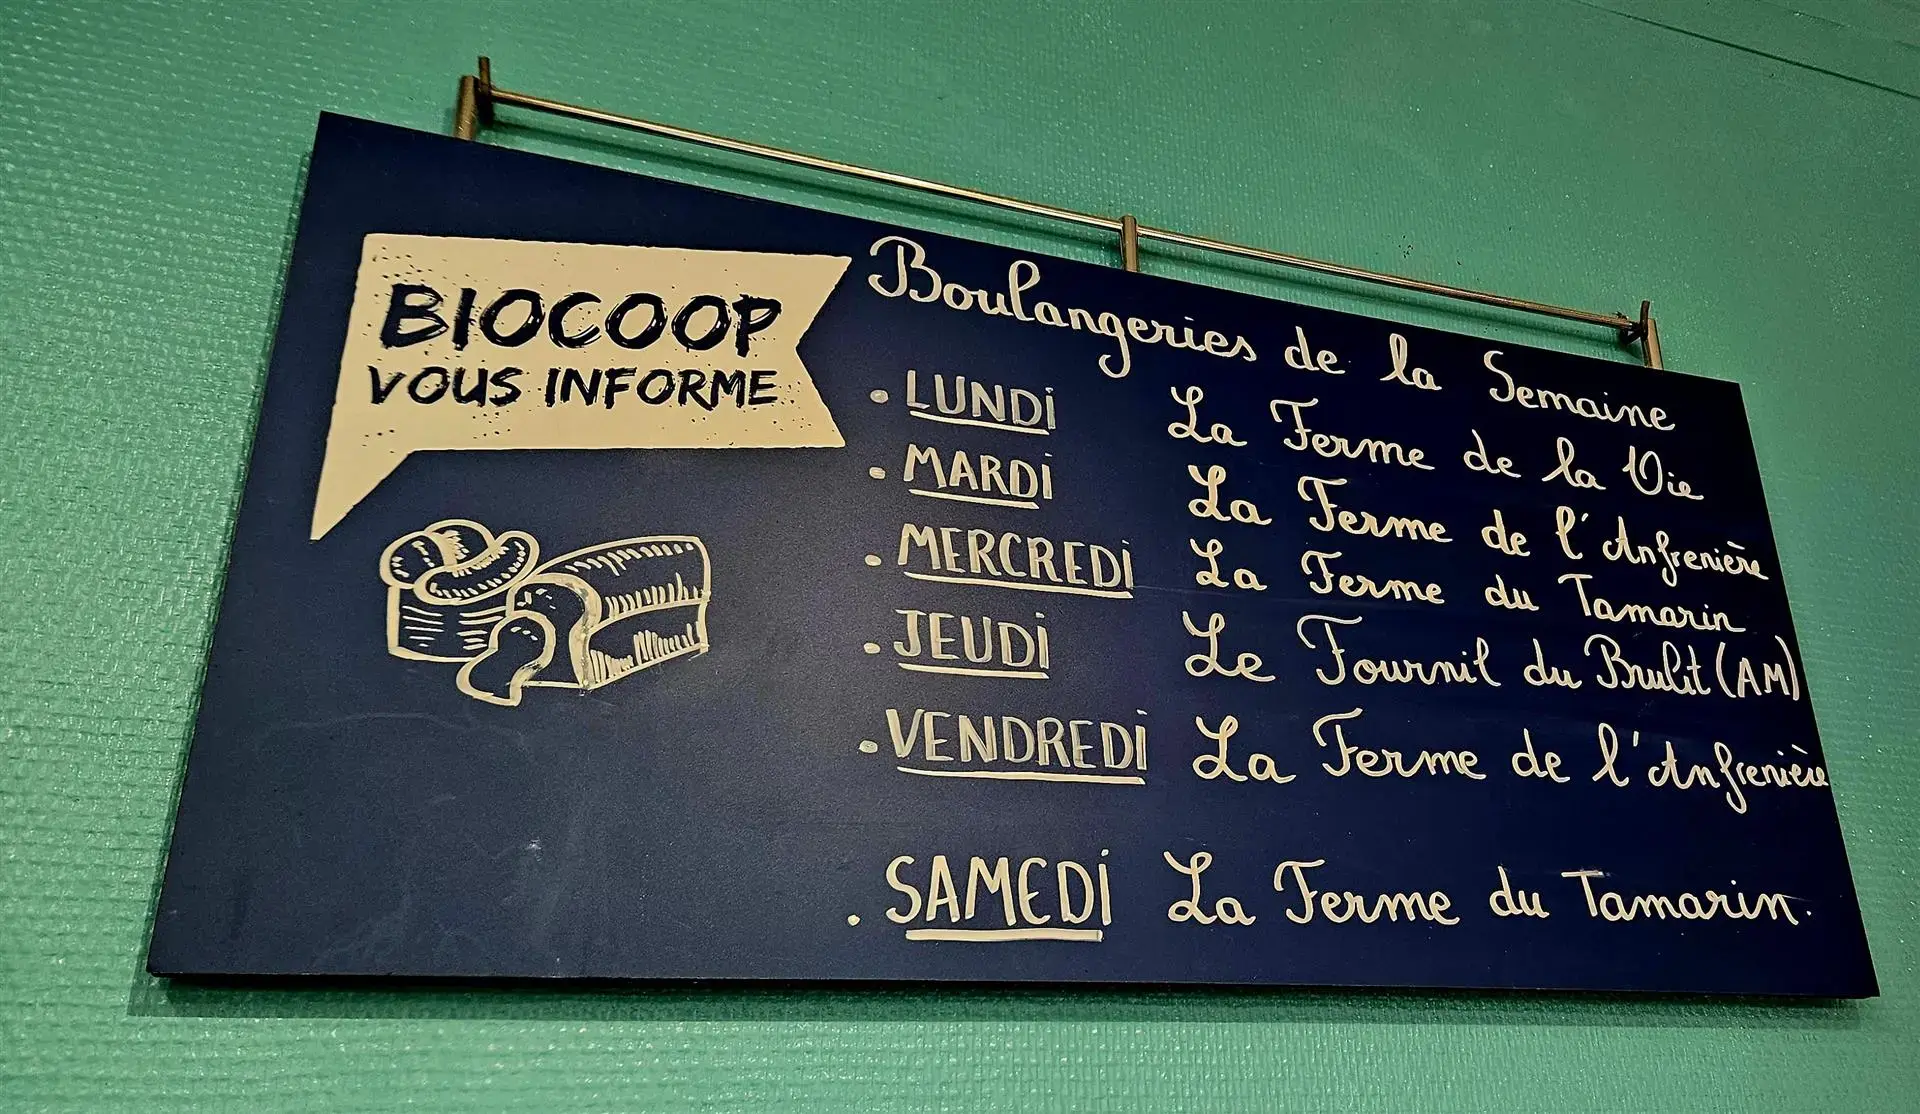 BIOCOOP
VOUS INFORME
Boulangeries de la Semaine
. LUNDi La Ferme de la Vie
. MARDi La Ferme de l'Anfrenière
. MERCREDi La Ferme du Tamarin
. JEUDi Le Fournil du Brulit (AM)
. VENDREDi La Ferme de l'Anfrenière
. SAMEDi La Ferme du Tamarin.